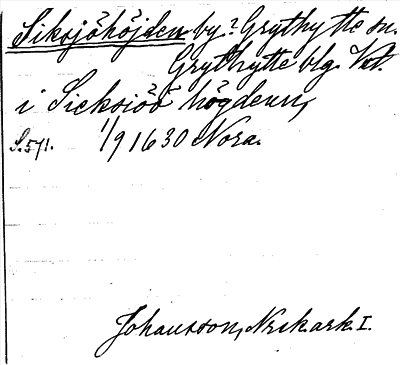 Siksjöhöjden by? Grythytte sn.
Grythytte blg. Vstm.
i Sicksiöö högdenn,
S. 571. 1/9 1630 Nora.
Johansson, Nrik.ark. I.